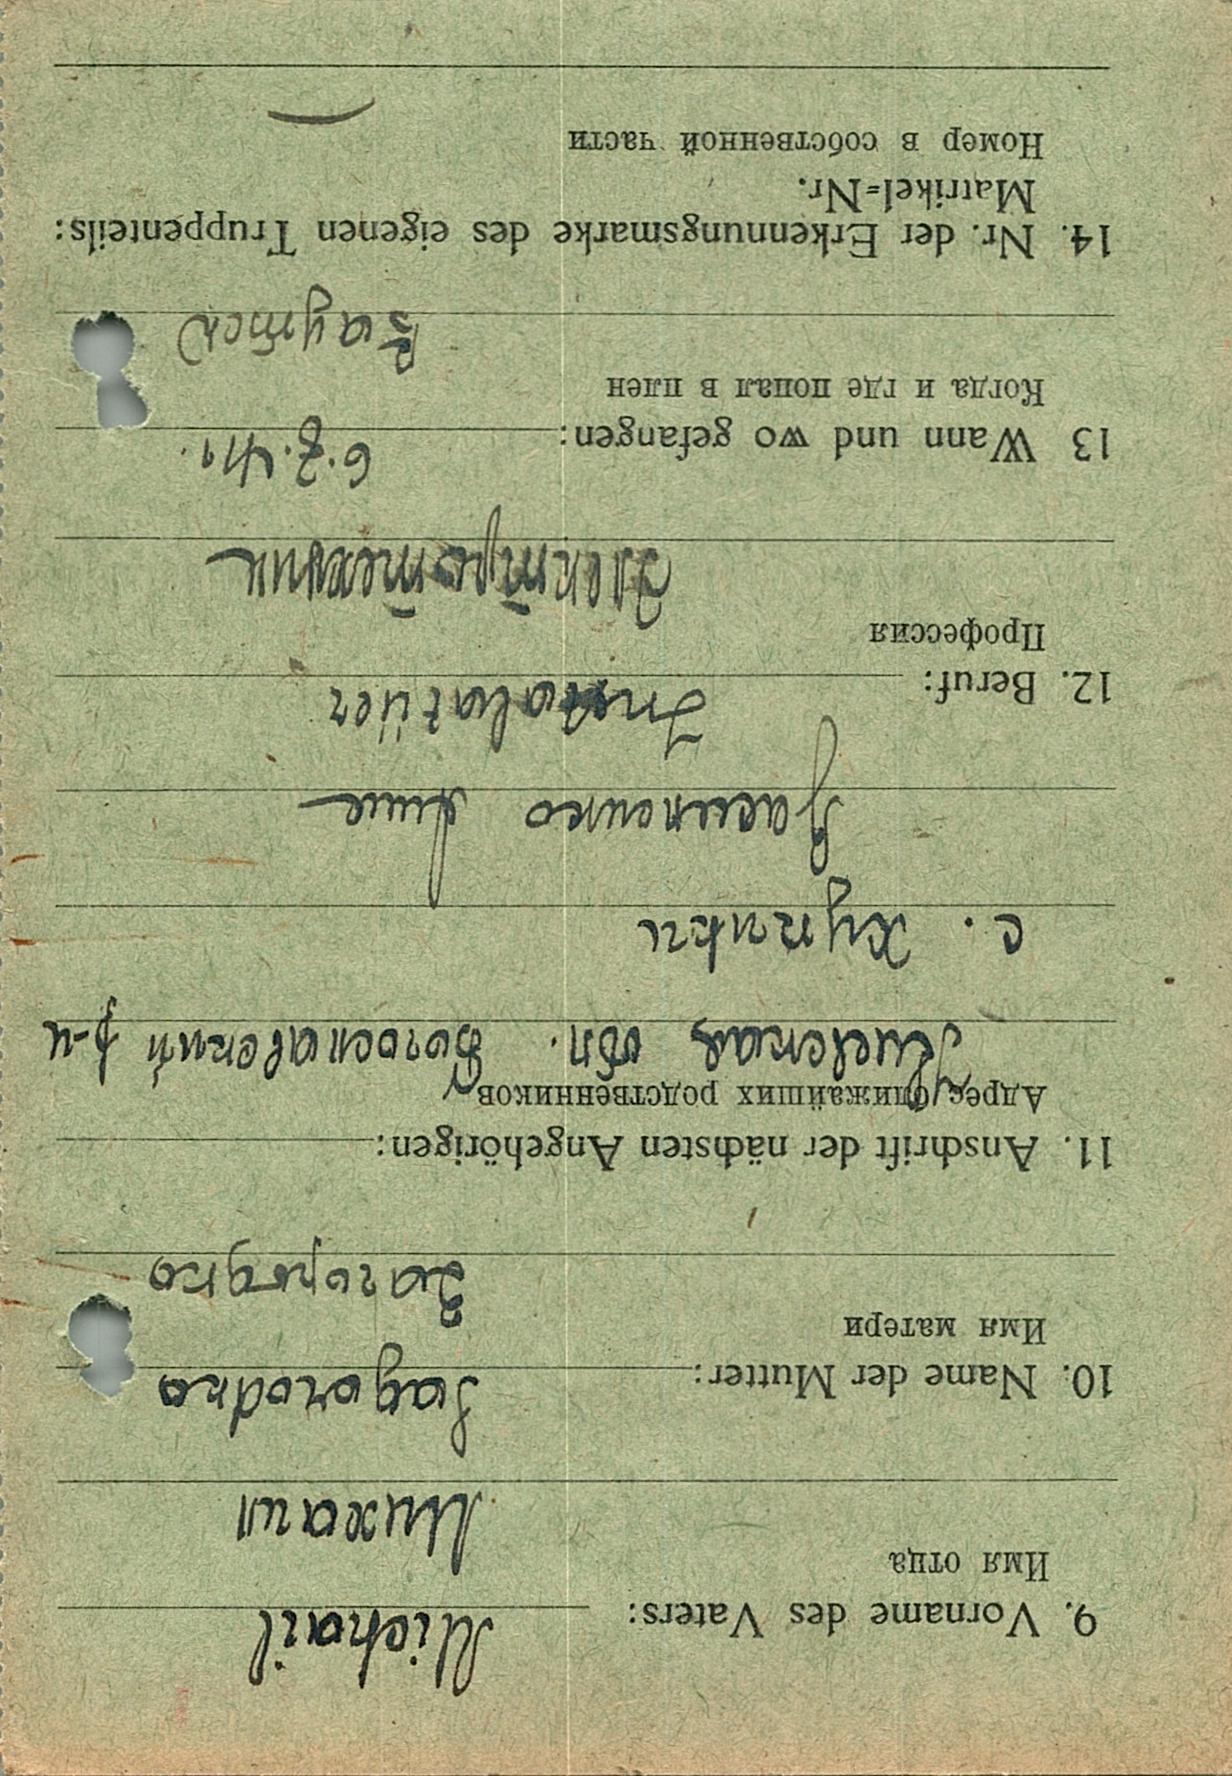 9. Vorname des Vaters: Michail
Имя отца
Михаил
10. Name der Mutter: Sagorodko
Имя матери
Загородко
11. Anschrift der nächsten Angehörigen:
Адрес ближайших родственников
Киевская обл. Богославский р-н
с.
12. Beruf:
Профессия
Электротехник
13 Wann und wo gefangen: 6.7.41
Когда и где попал в плен
14. Nr. der Erkennungsmarke des eigenen Truppenteils:
Matrikel=Nr.
Номер в собственной части